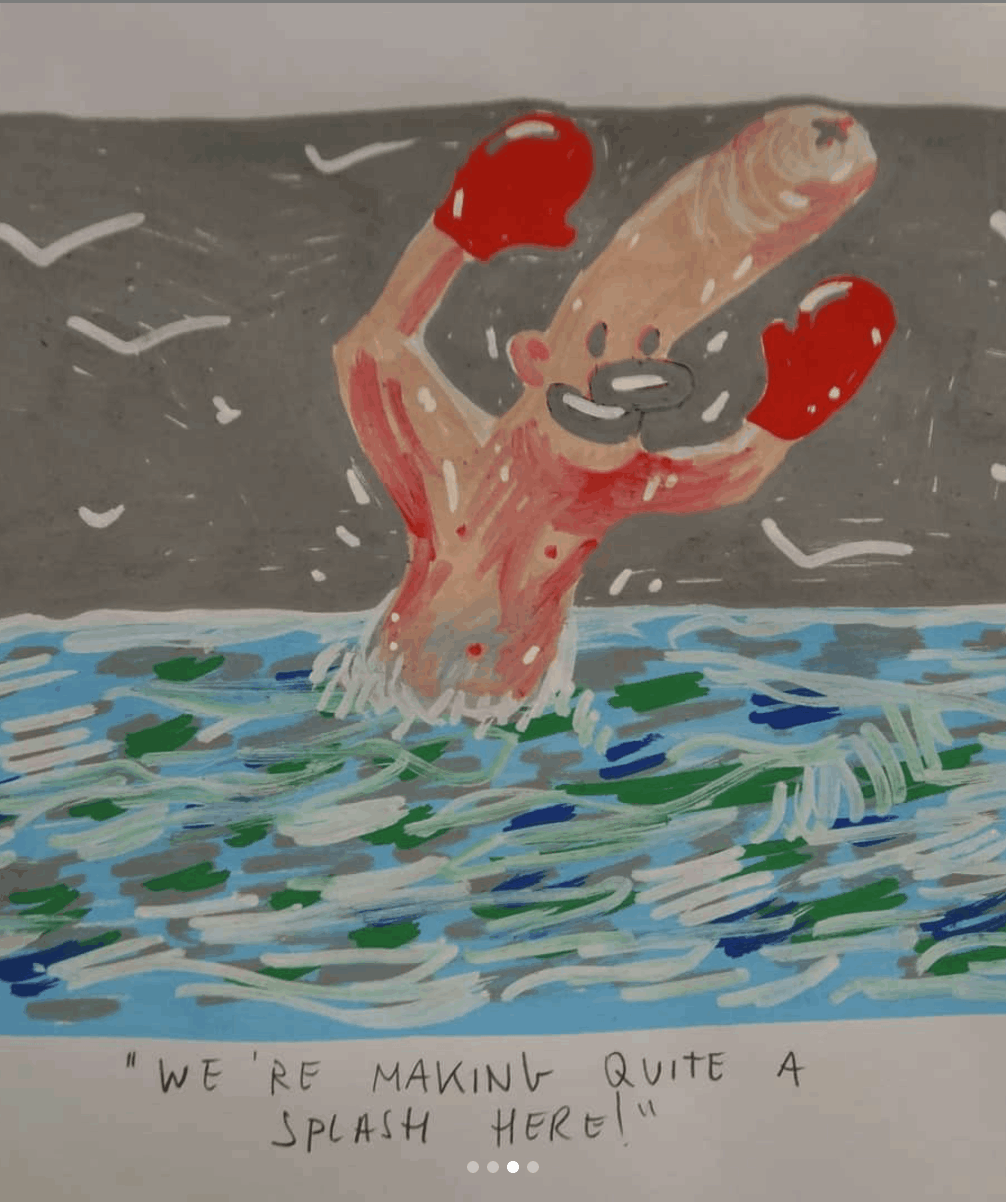 "WE'RE MAKING QUITE A
SPLASH HERE!"